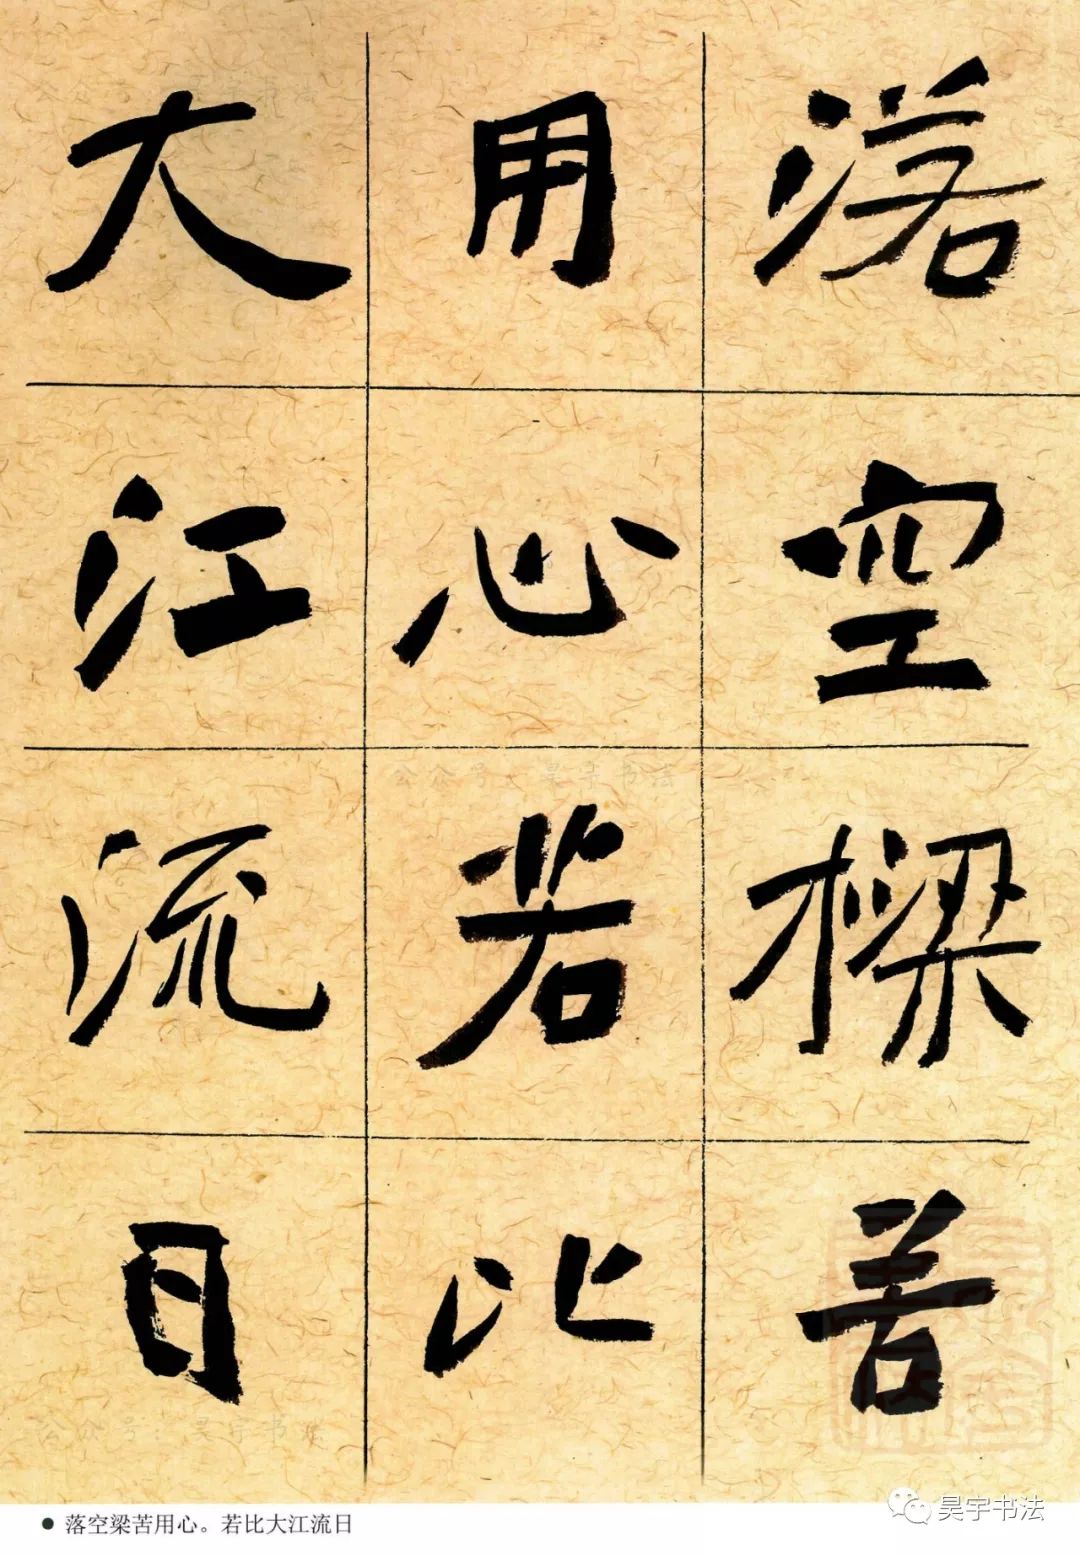 落空樑苦
用心若比
大江流日
公众号：昊宇书法
公众号：昊宇书法
● 落空梁苦用心。若比大江流日
昊宇书法